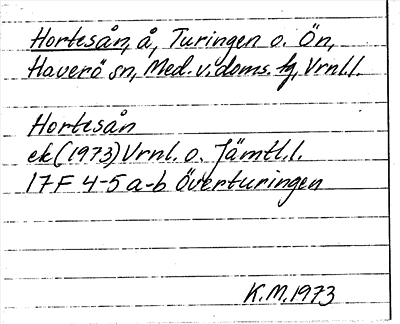 Hortesån, å, Turingen o. Ön,
Haverö sn, Med. v. doms. tg, Vrnl.l.
Hortesån
ek (1973) Vrnl. o. Jämtl.l.
17F 4-5 a-b Överturingen
K.M. 1973